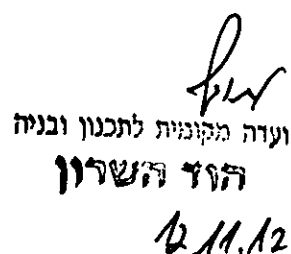 ועדה מקומית לתכנון ובניה
הוד השרון
12.11.12